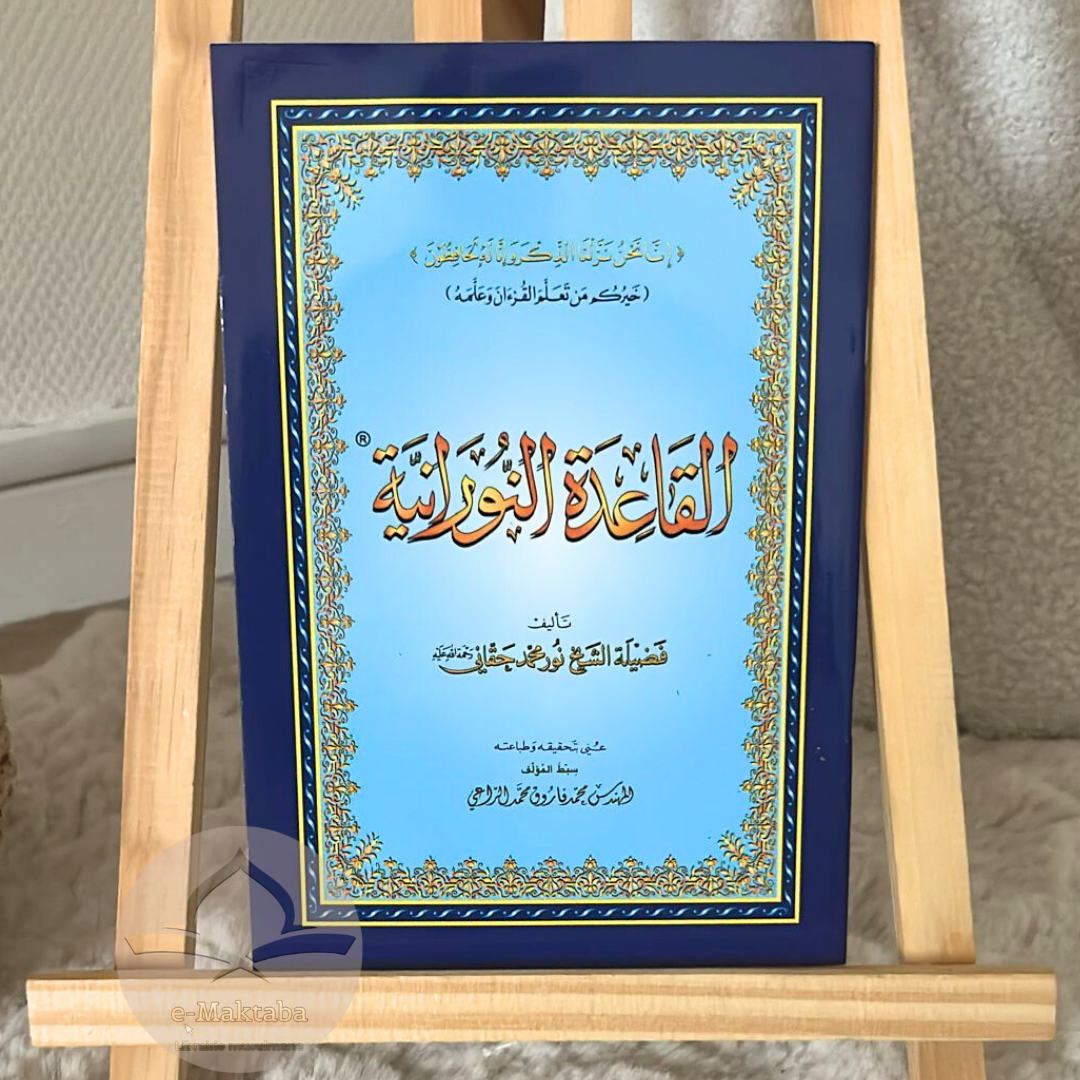 ﴿ إِنَّا نَحْنُ نَزَّلْنَا الذِّكْرَ وَإِنَّا لَهُ لَحَافِظُونَ ﴾
( خَيْرُكُم مَن تَعَلَّمَ القُرْءَانَ وَعَلَّمَهُ )
القَاعِدَة النُّورَانِيَّة ®
تَأليف
فَضِيلَة الشَّيْخ نُور مُحَمَّد حَقَّانِي رَحْمَةُ اللهِ عَلَيْهِ
عُنِيَ بتَحقيقه وَطباعته
سِبْط المؤلّف
المهندس محمد فاروق محمد الراعي
e-Maktaba
Librairie musulmane